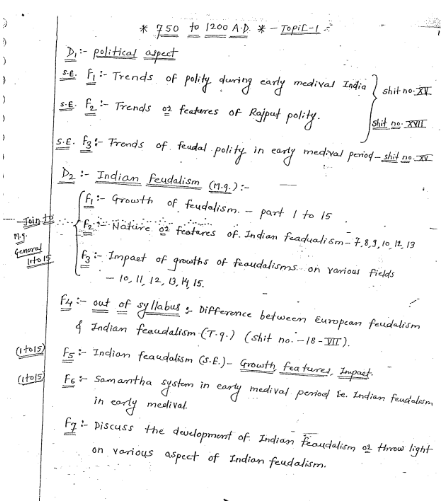 * 750 to 1200 A.D. * - Topic-1
D1 :- political aspect
S.E. F1 :- Trends of polity during early medival India
shit no. XV
S.E. F2 :- Trends or features of Rajput polity.
shit no. XVII
S.E. F3 :- Tronds of feudal polity in early medival period - shit no. XV
D2 :- Indian feudalism (M.q.) :-
F1 :- Growth of feudalism. - part 1 to 15
Join
F2 :- Nature or features of Indian feadualism - 7,8,9,10,12,13
M.q.
General
1 to 15
F3 :- Impact of growths of feaudalisms on various fields
- 10, 11, 12, 13, 14, 15.
F4 :- out of syllabus :- Difference between European feudalism
& Indian feaudalism (T.q.) (shit no. - 18 - VII).
(1 to 15) F5 :- Indian feaudalism (S.E.) - Growth, features, Impact.
(1 to 15) F6 :- Samantha system in early medival period ie. Indian feudalism,
in early medival.
F7 :- Discuss the development of Indian feaudalism or throw light
on various aspect of Indian feudalism.